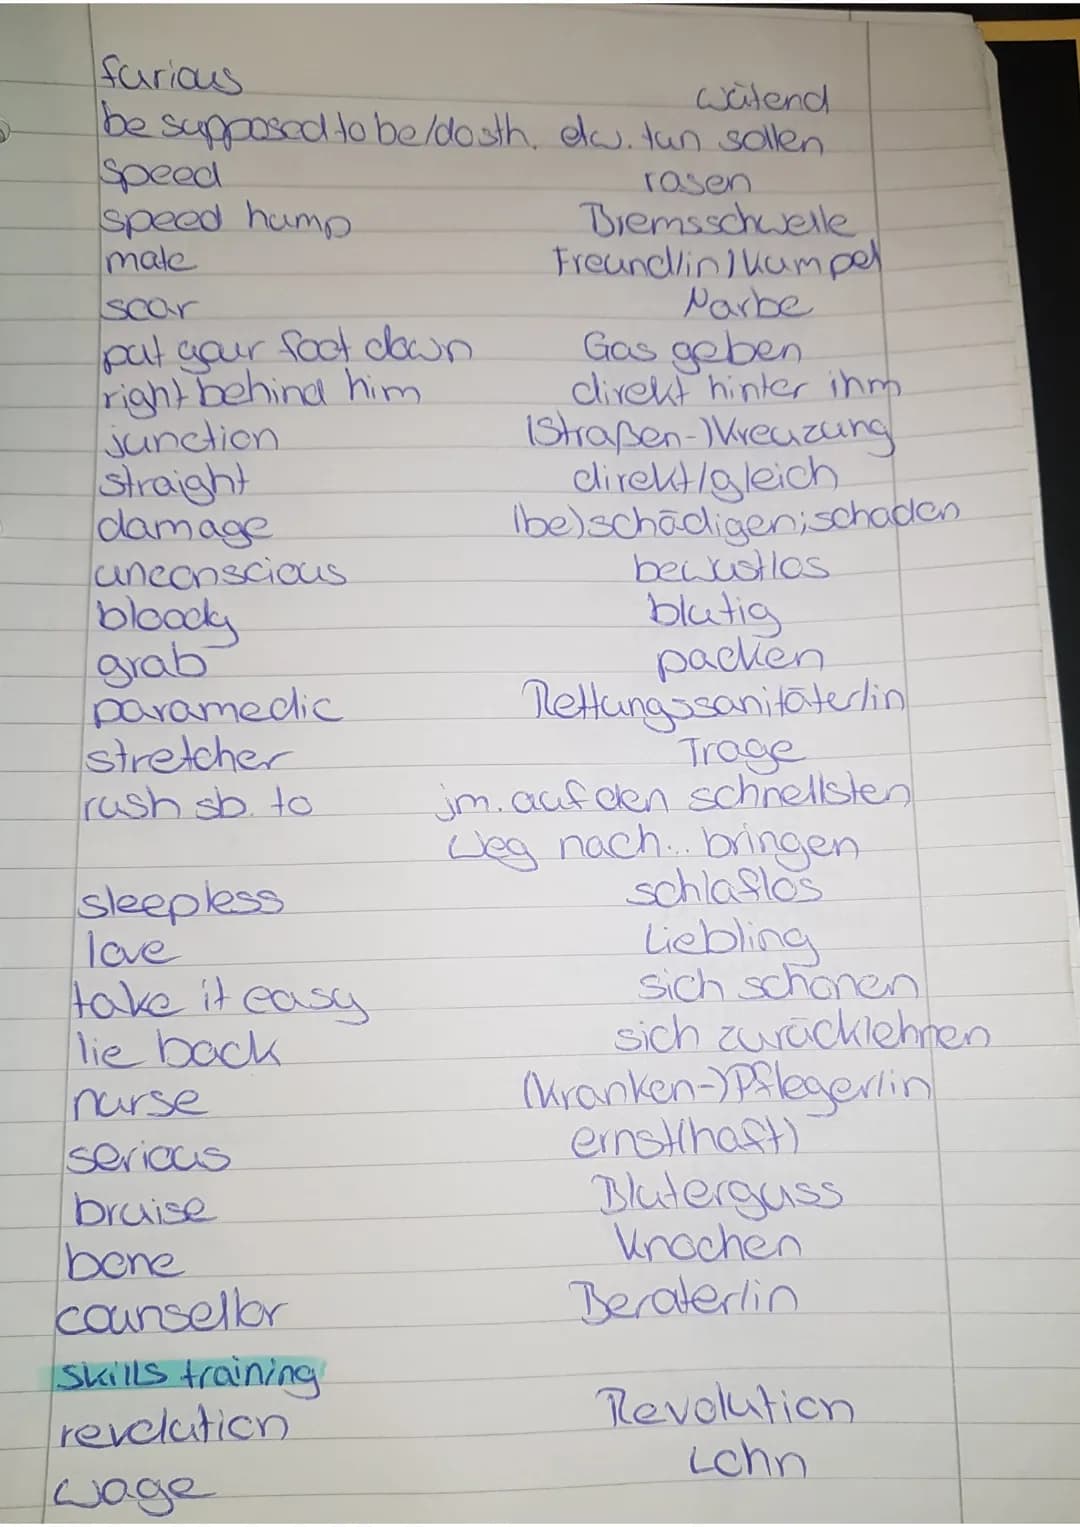 furious wütend
be supposed to be/do sth. etw. tun sollen
speed rasen
speed hump Bremsschwelle
mate Freund/in/Kumpel
scar Narbe
put your foot down Gas geben
right behind him direkt hinter ihm
junction (Straßen-)Kreuzung
straight direkt/gleich
damage (be)schädigen;schaden
unconscious bewustlos
bloody blutig
grab packen
paramedic Rettungssanitäter/in
stretcher Trage
rush sb. to jm. auf den schnellsten
Weg nach... bringen
sleepless schlaflos
love Liebling
take it easy sich schonen
lie back sich zurücklehnen
nurse (Kranken-)Pfleger/in
serious ernst(haft)
bruise Bluterguss
bone Knochen
counsellor Berater/in
skills training
revolution Revolution
wage Lohn